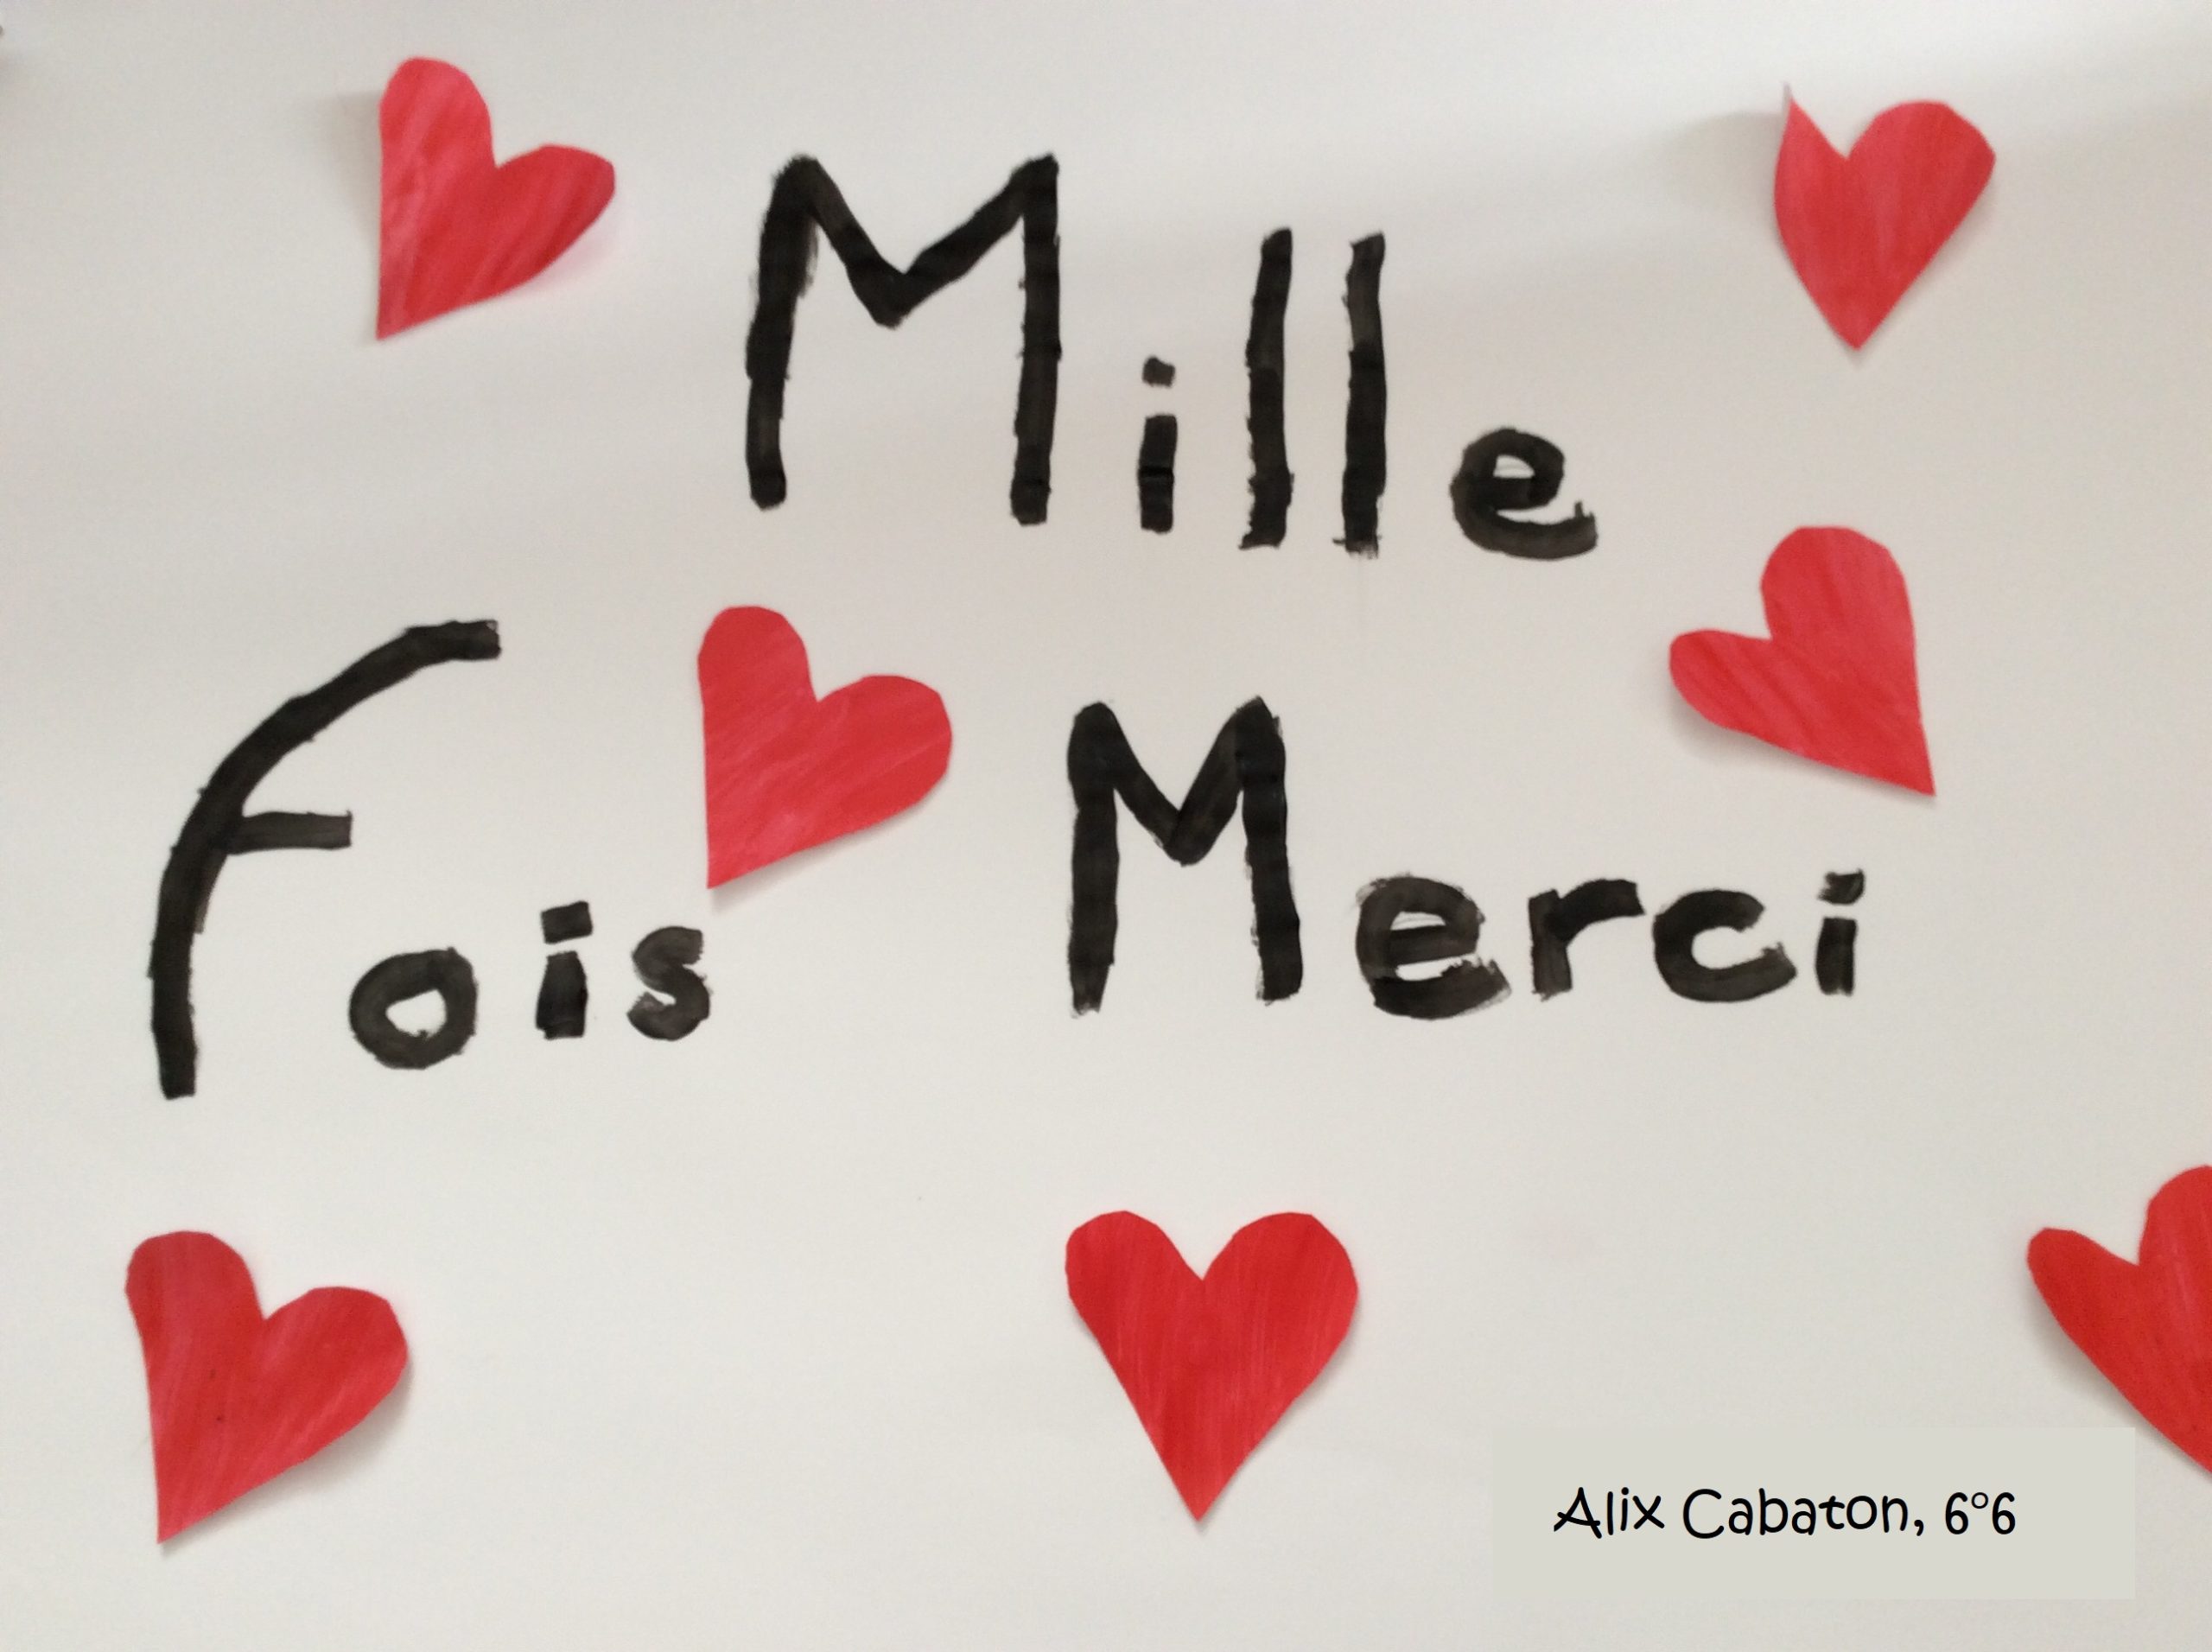 Mille
Fois Merci
Alix Cabaton, 6°6